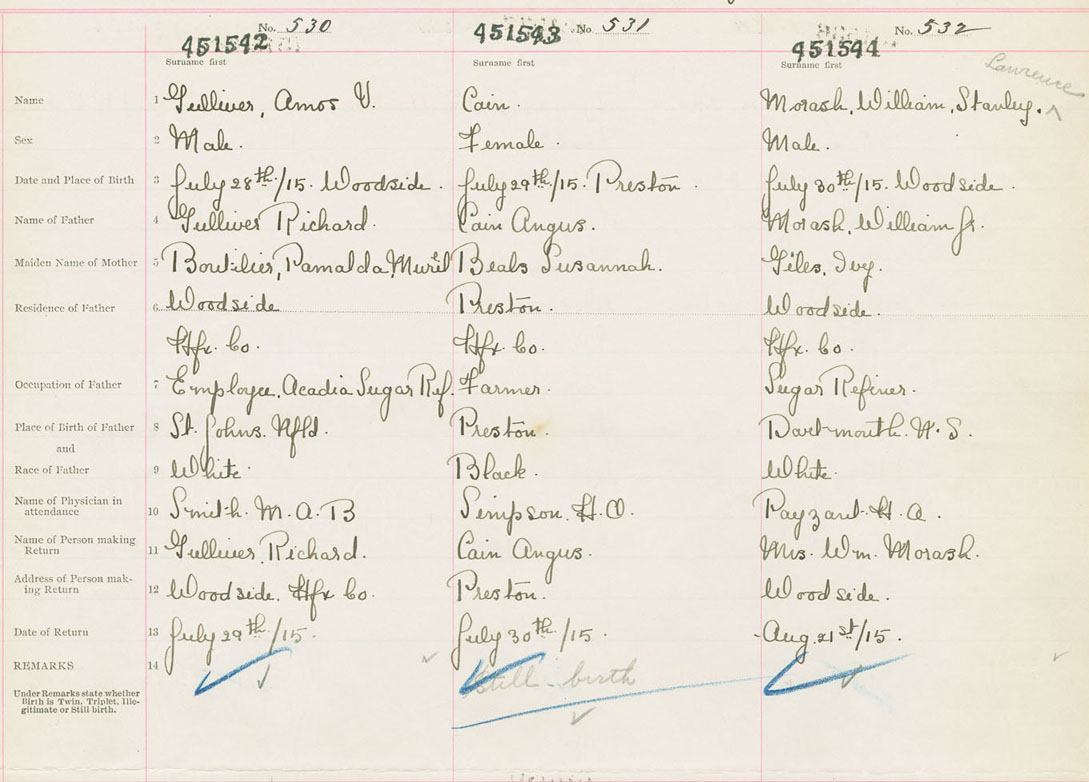 No. 530 No. 531 No. 532
451542 451543 451544
Surname first Surname first Surname first
Lawrence
Name 1 Gulliver, Amos V. Cain. Morash, William, Stanley. ^
Sex 2 Male. Female. Male.
Date and Place of Birth 3 July 28th/15. Woodside. July 29th/15. Preston. July 30th/15. Woodside.
Name of Father 4 Gulliver Richard. Cain Angus. Morash, William Jr.
Maiden Name of Mother 5 Boutilier, Pamalda Muriel Beals Susannah. Giles, Ivy.
Residence of Father 6 Woodside Preston. Woodside.
Hfx. Co. Hfx. Co. Hfx. Co.
Occupation of Father 7 Employee, Acadia Sugar Ref. Farmer. Sugar Refiner.
Place of Birth of Father 8 St. Johns. Nfld. Preston. Dartmouth. N. S.
and
Race of Father 9 White. Black. White.
Name of Physician in
attendance 10 Smith. M. A. B Simpson. H. O. Payzant. H. A.
Name of Person making
Return 11 Gulliver, Richard. Cain Angus. Mrs. Wm. Morash.
Address of Person mak-
ing Return 12 Woodside. Hfx Co. Preston. Woodside.
Date of Return 13 July 29th/15. July 30th/15. Aug. 21st/15.
REMARKS 14 Still birth
Under Remarks state whether
Birth is Twin, Triplet, Ille-
gitimate or Still birth.